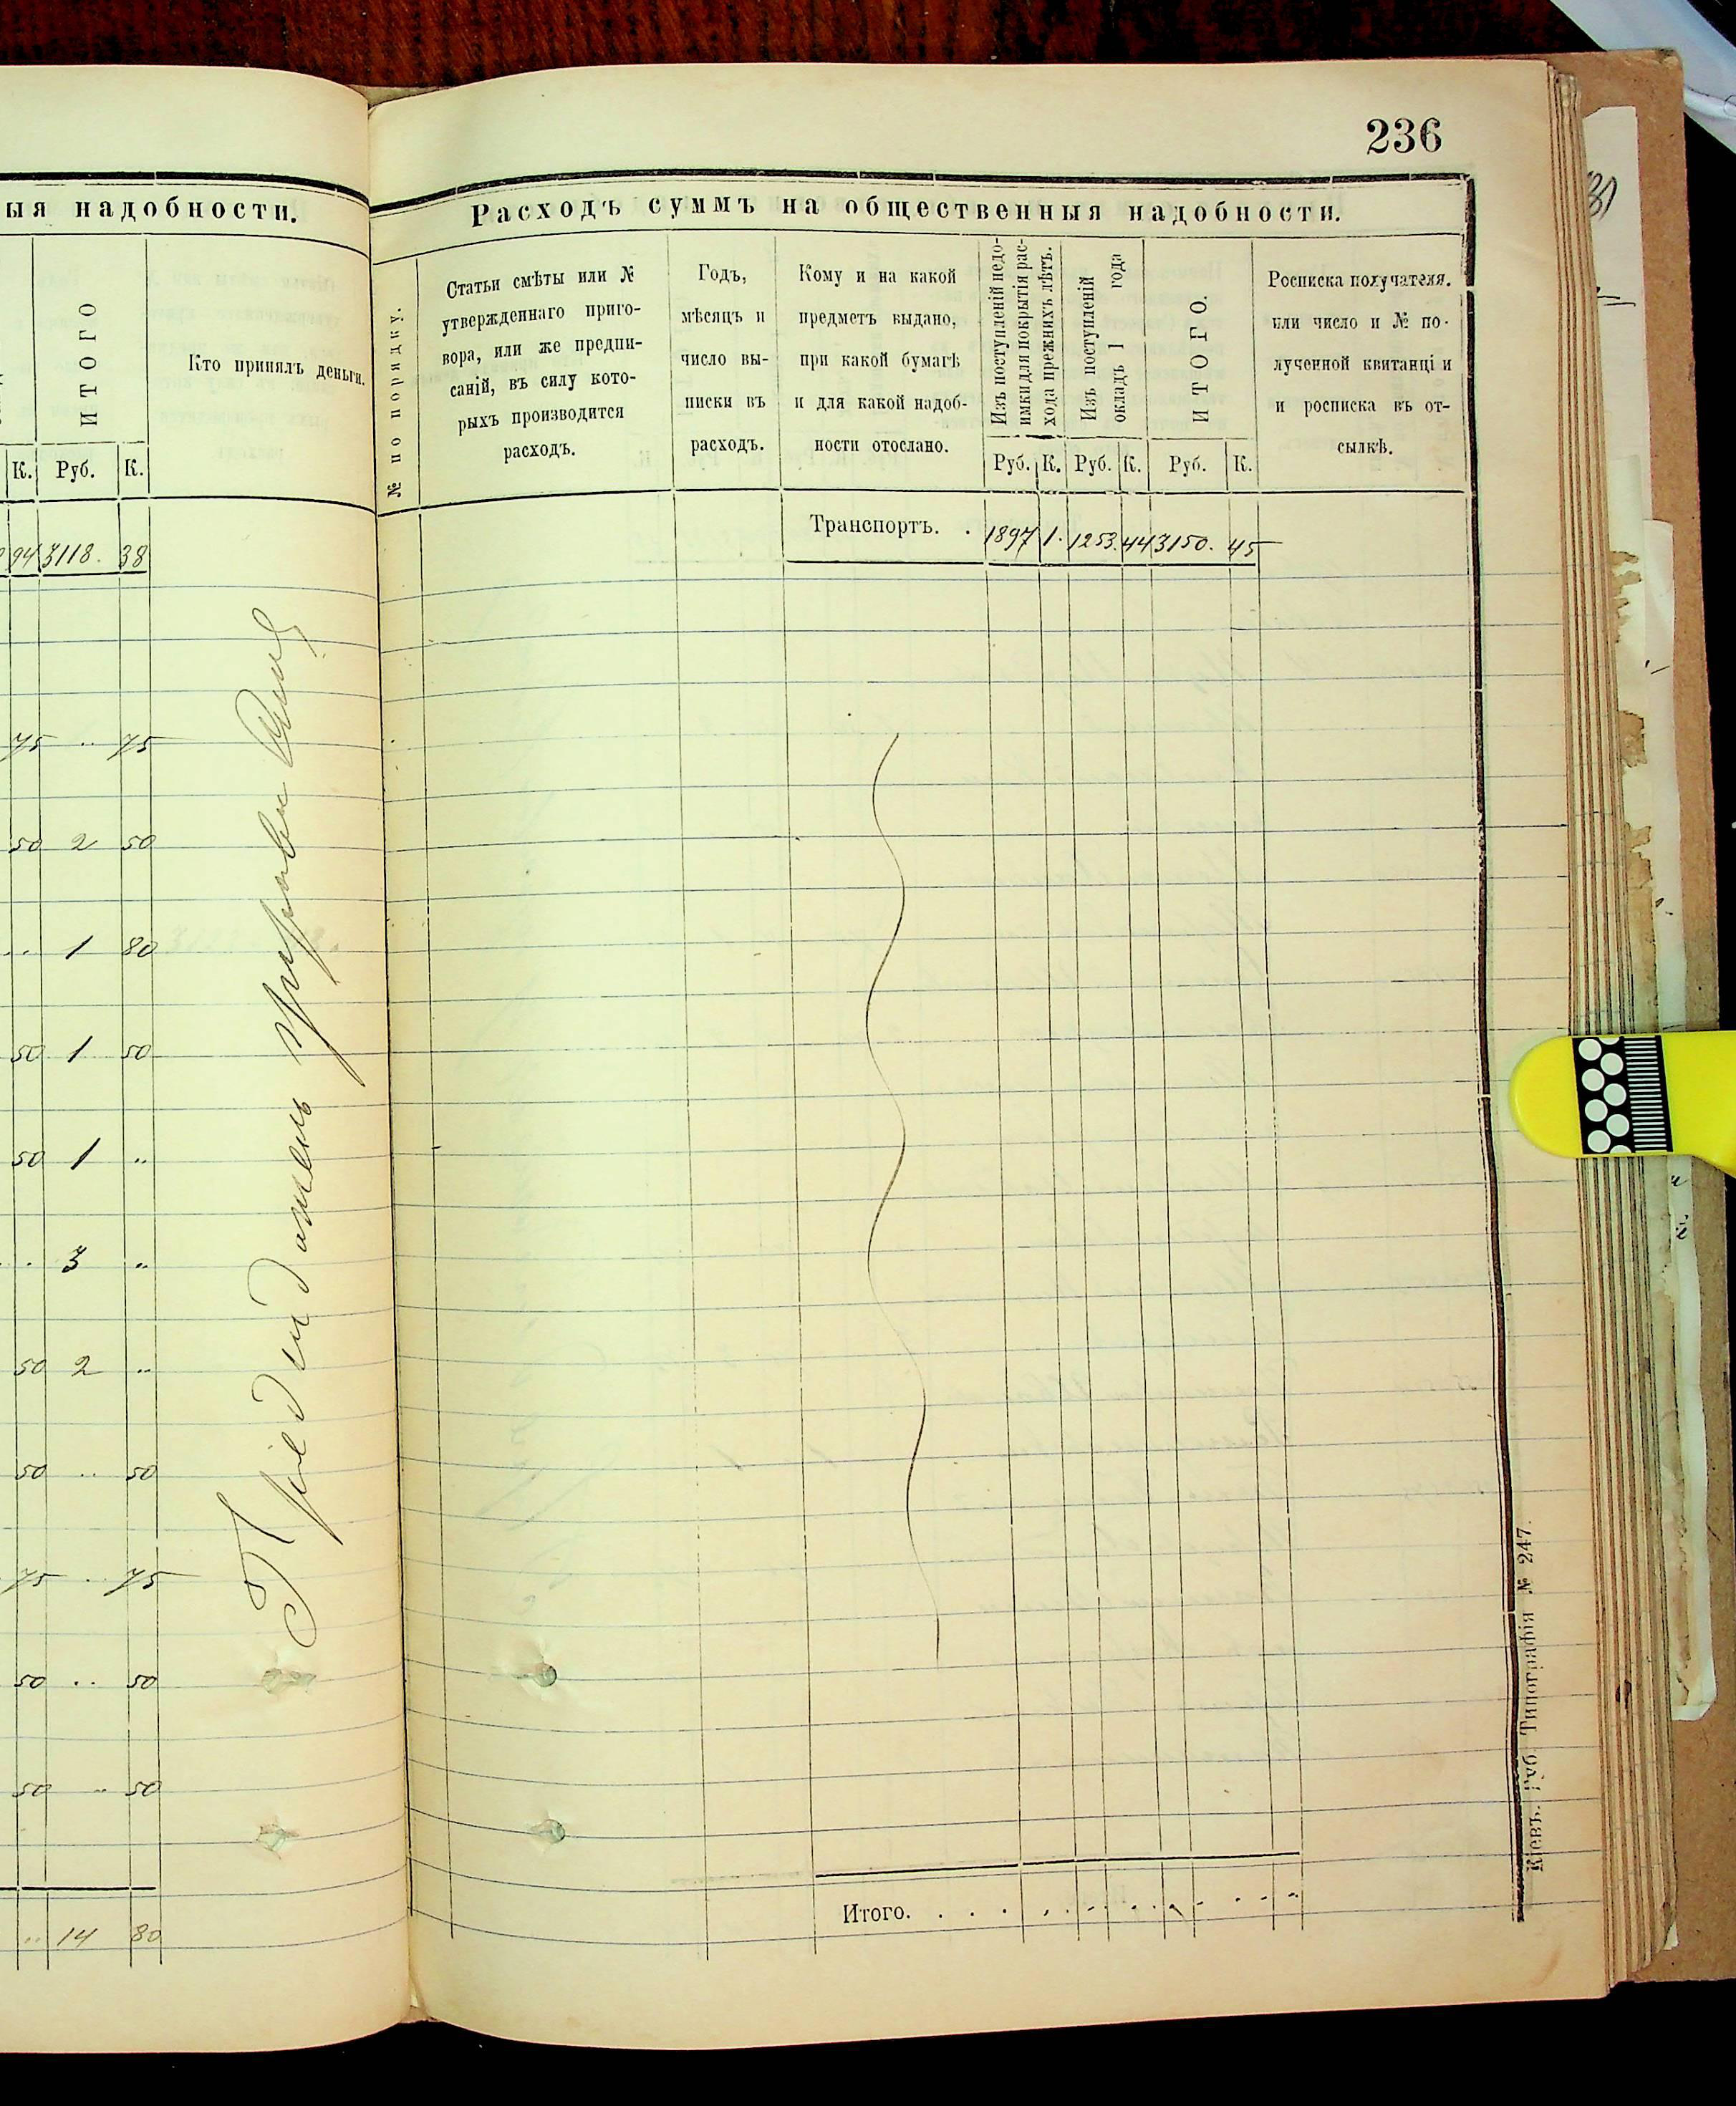 236
ыя надобности.
ИТОГО
Кто принялъ деньги.
К. Руб. К.
94 3118. 38
75 .. 75
50 2 50
.. 1 80
50 1 50
50 1 ..
. 3 ..
50 2 ..
50 .. 50
75 .. 75
50 .. 50
50 .. 50
.. 14 80
Расходъ суммъ на общественныя надобности.
№ по порядку.
Статьи смѣты или №
утвержденнаго приго-
вора, или же предпи-
саній, въ силу кото-
рыхъ производится
расходъ.
Годъ,
мѣсяцъ и
число вы-
писки въ
расходъ.
Кому и на какой
предметъ выдано,
при какой бумагѣ
и для какой надоб-
ности отослано.
Изъ поступленій недо-
имки для покрытія рас-
хода прежнихъ лѣтъ.
Изъ поступленій
окладъ 1 года
ИТОГО.
Росписка получателя.
или число и № по-
лученной квитанціи
и росписка въ от-
сылкѣ.
Руб. К. Руб. К. Руб. К.
Транспортъ. . 1897 1. 1253. 44 3150. 45
Итого. . . .
Кіевъ. Губ. Типографія № 247.